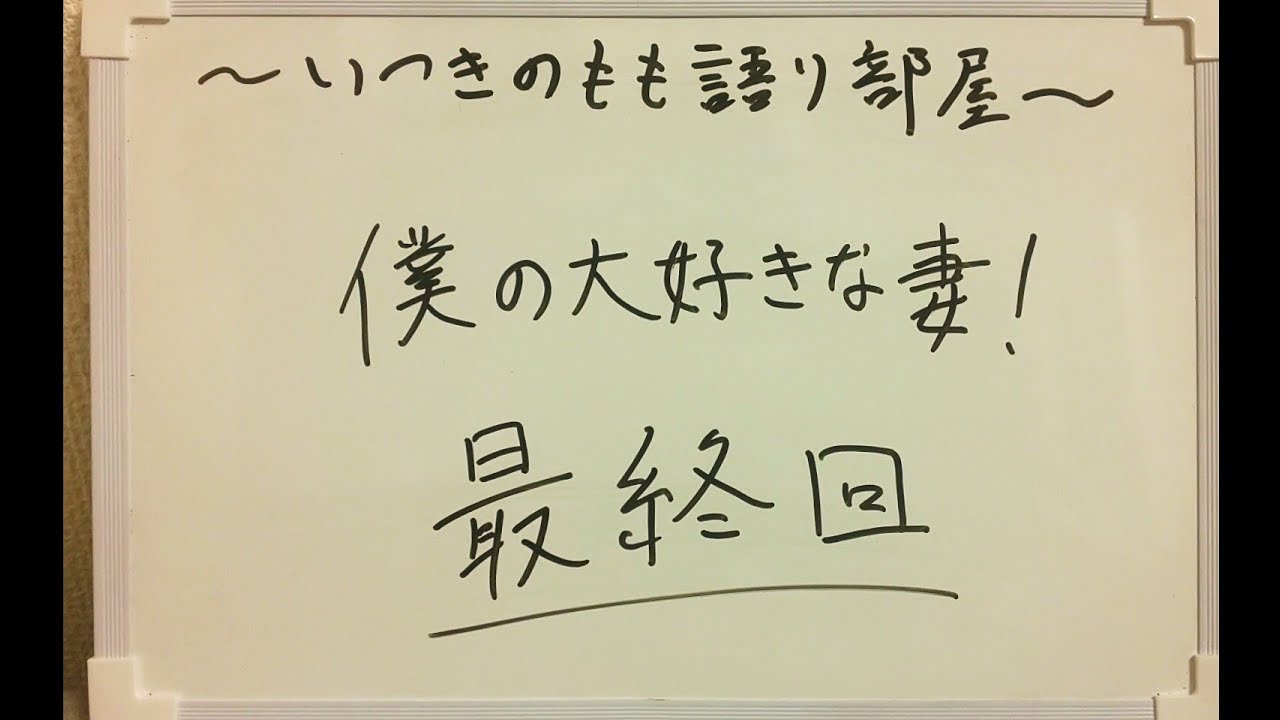 ～いつきのもも語り部屋～
僕の大好きな妻!
最終回